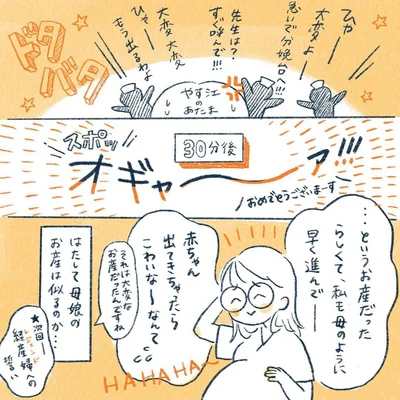 ひゃー
大変よー
急いで分娩台へ!!!
先生は?
すぐ呼んで!!!
大変大変
ひゃー
もう出るわよ
ドタ
バタ
やす江
の
あたま
スポッ
30分後
オギャーーァ!!!
おめでとうございまーす
…というお産だった
らしくて、私も母のように
早く進んでー
赤ちゃん
出てきちゃったら
こわいなーなんて
それは大変な
お産だったんですね
HAHAHA〜
はたして母娘の
お産は似るのか…
★次回
経産婦への
誓い